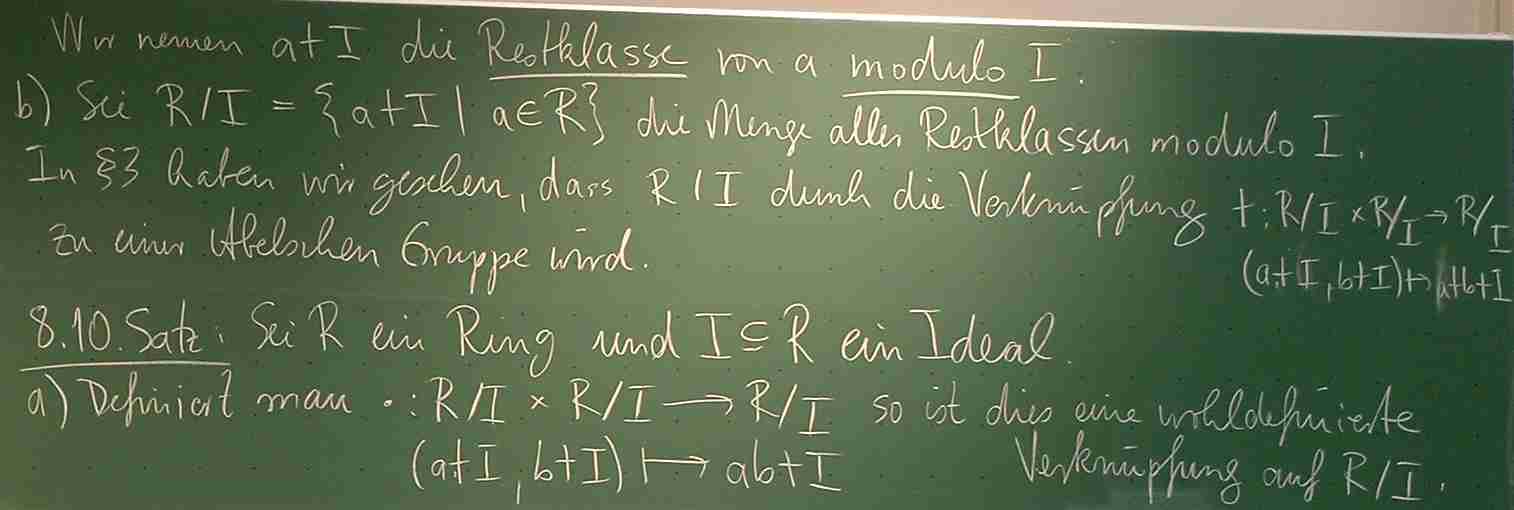 Wir nennen a+I die Restklasse von a modulo I.
b) Sei R/I = {a+I | a∈R} die Menge aller Restklassen modulo I.
In §3 haben wir gesehen, dass R/I durch die Verknüpfung +: R/I × R/I → R/I
(a+I, b+I) ↦ a+b+I
zu einer Abelschen Gruppe wird.
8.10. Satz: Sei R ein Ring und I ⊆ R ein Ideal.
a) Definiert man · : R/I × R/I ⟶ R/I so ist dies eine wohldefinierte
(a+I, b+I) ⟼ ab+I Verknüpfung auf R/I.